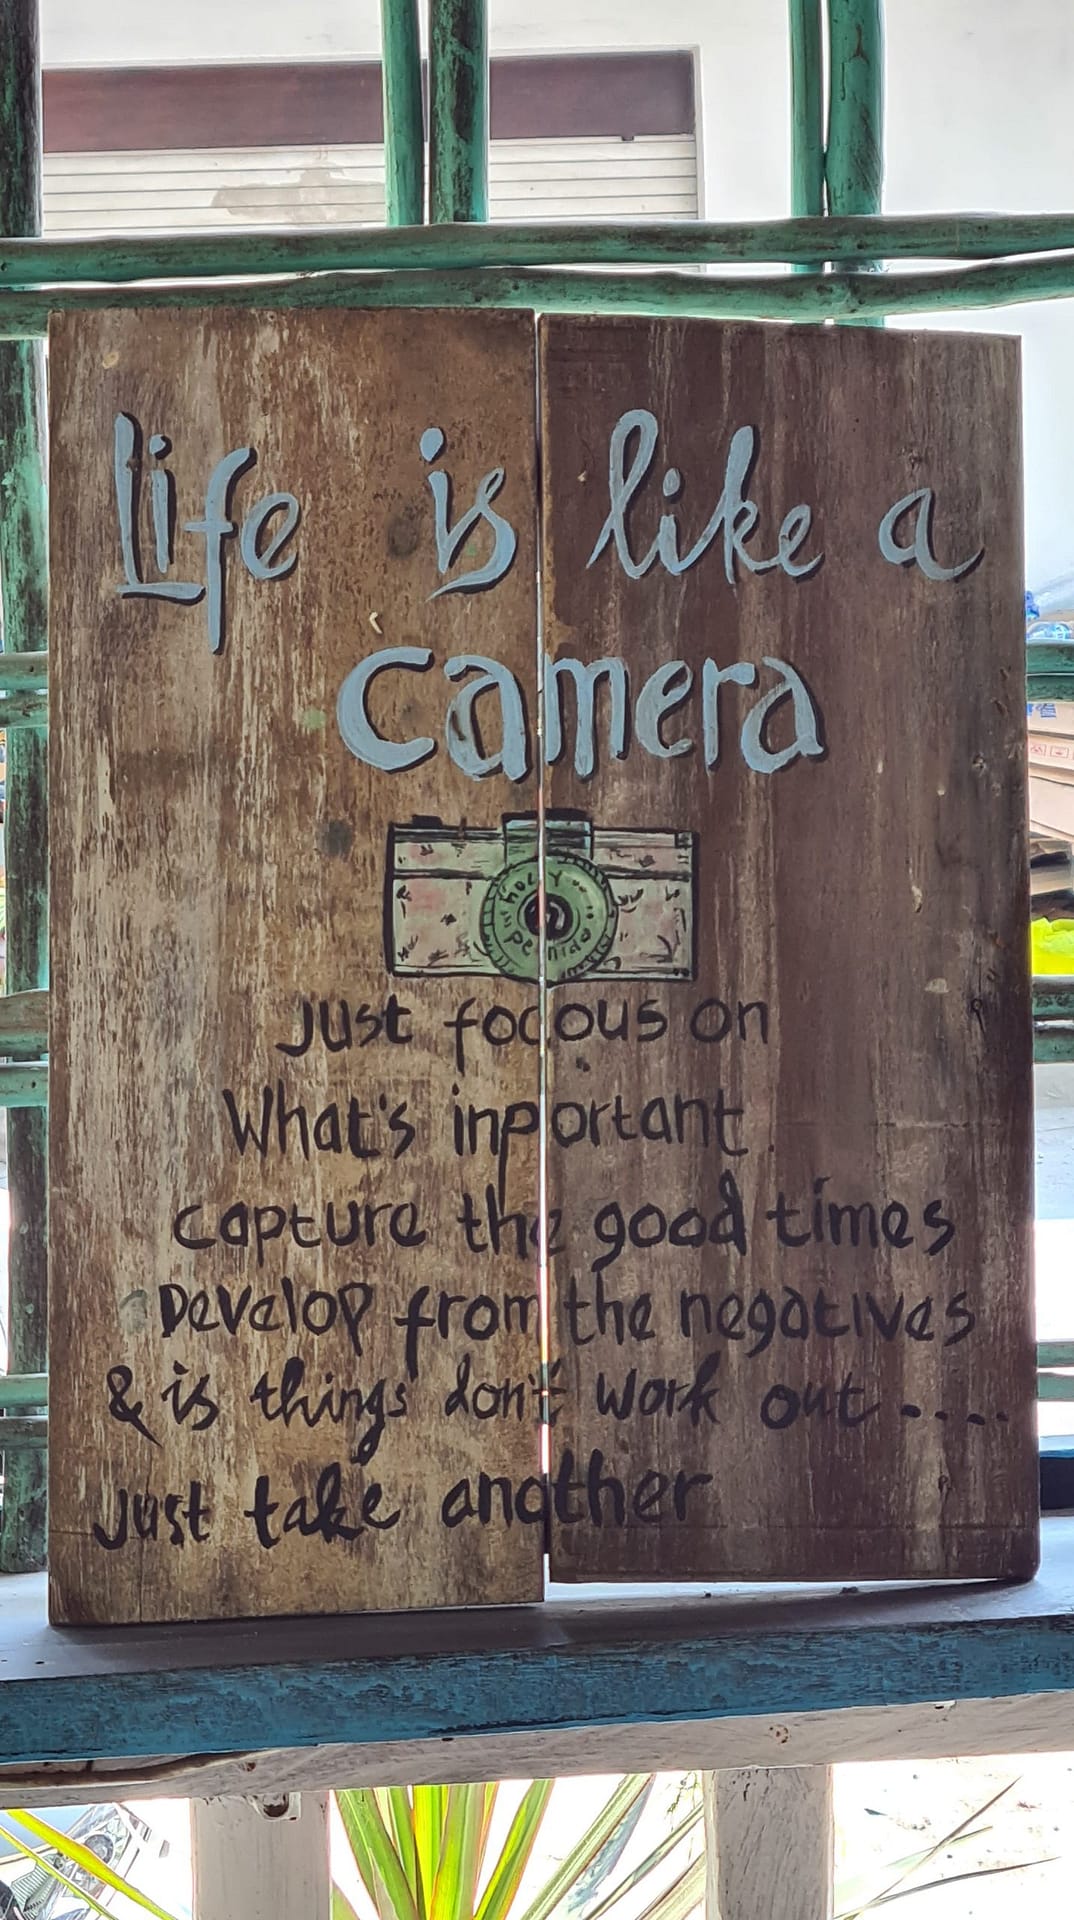 Life is like a
camera
Just focous on
What's inportant.
capture the good times
Develop from the negatives
& is things don't work out....
Just take another